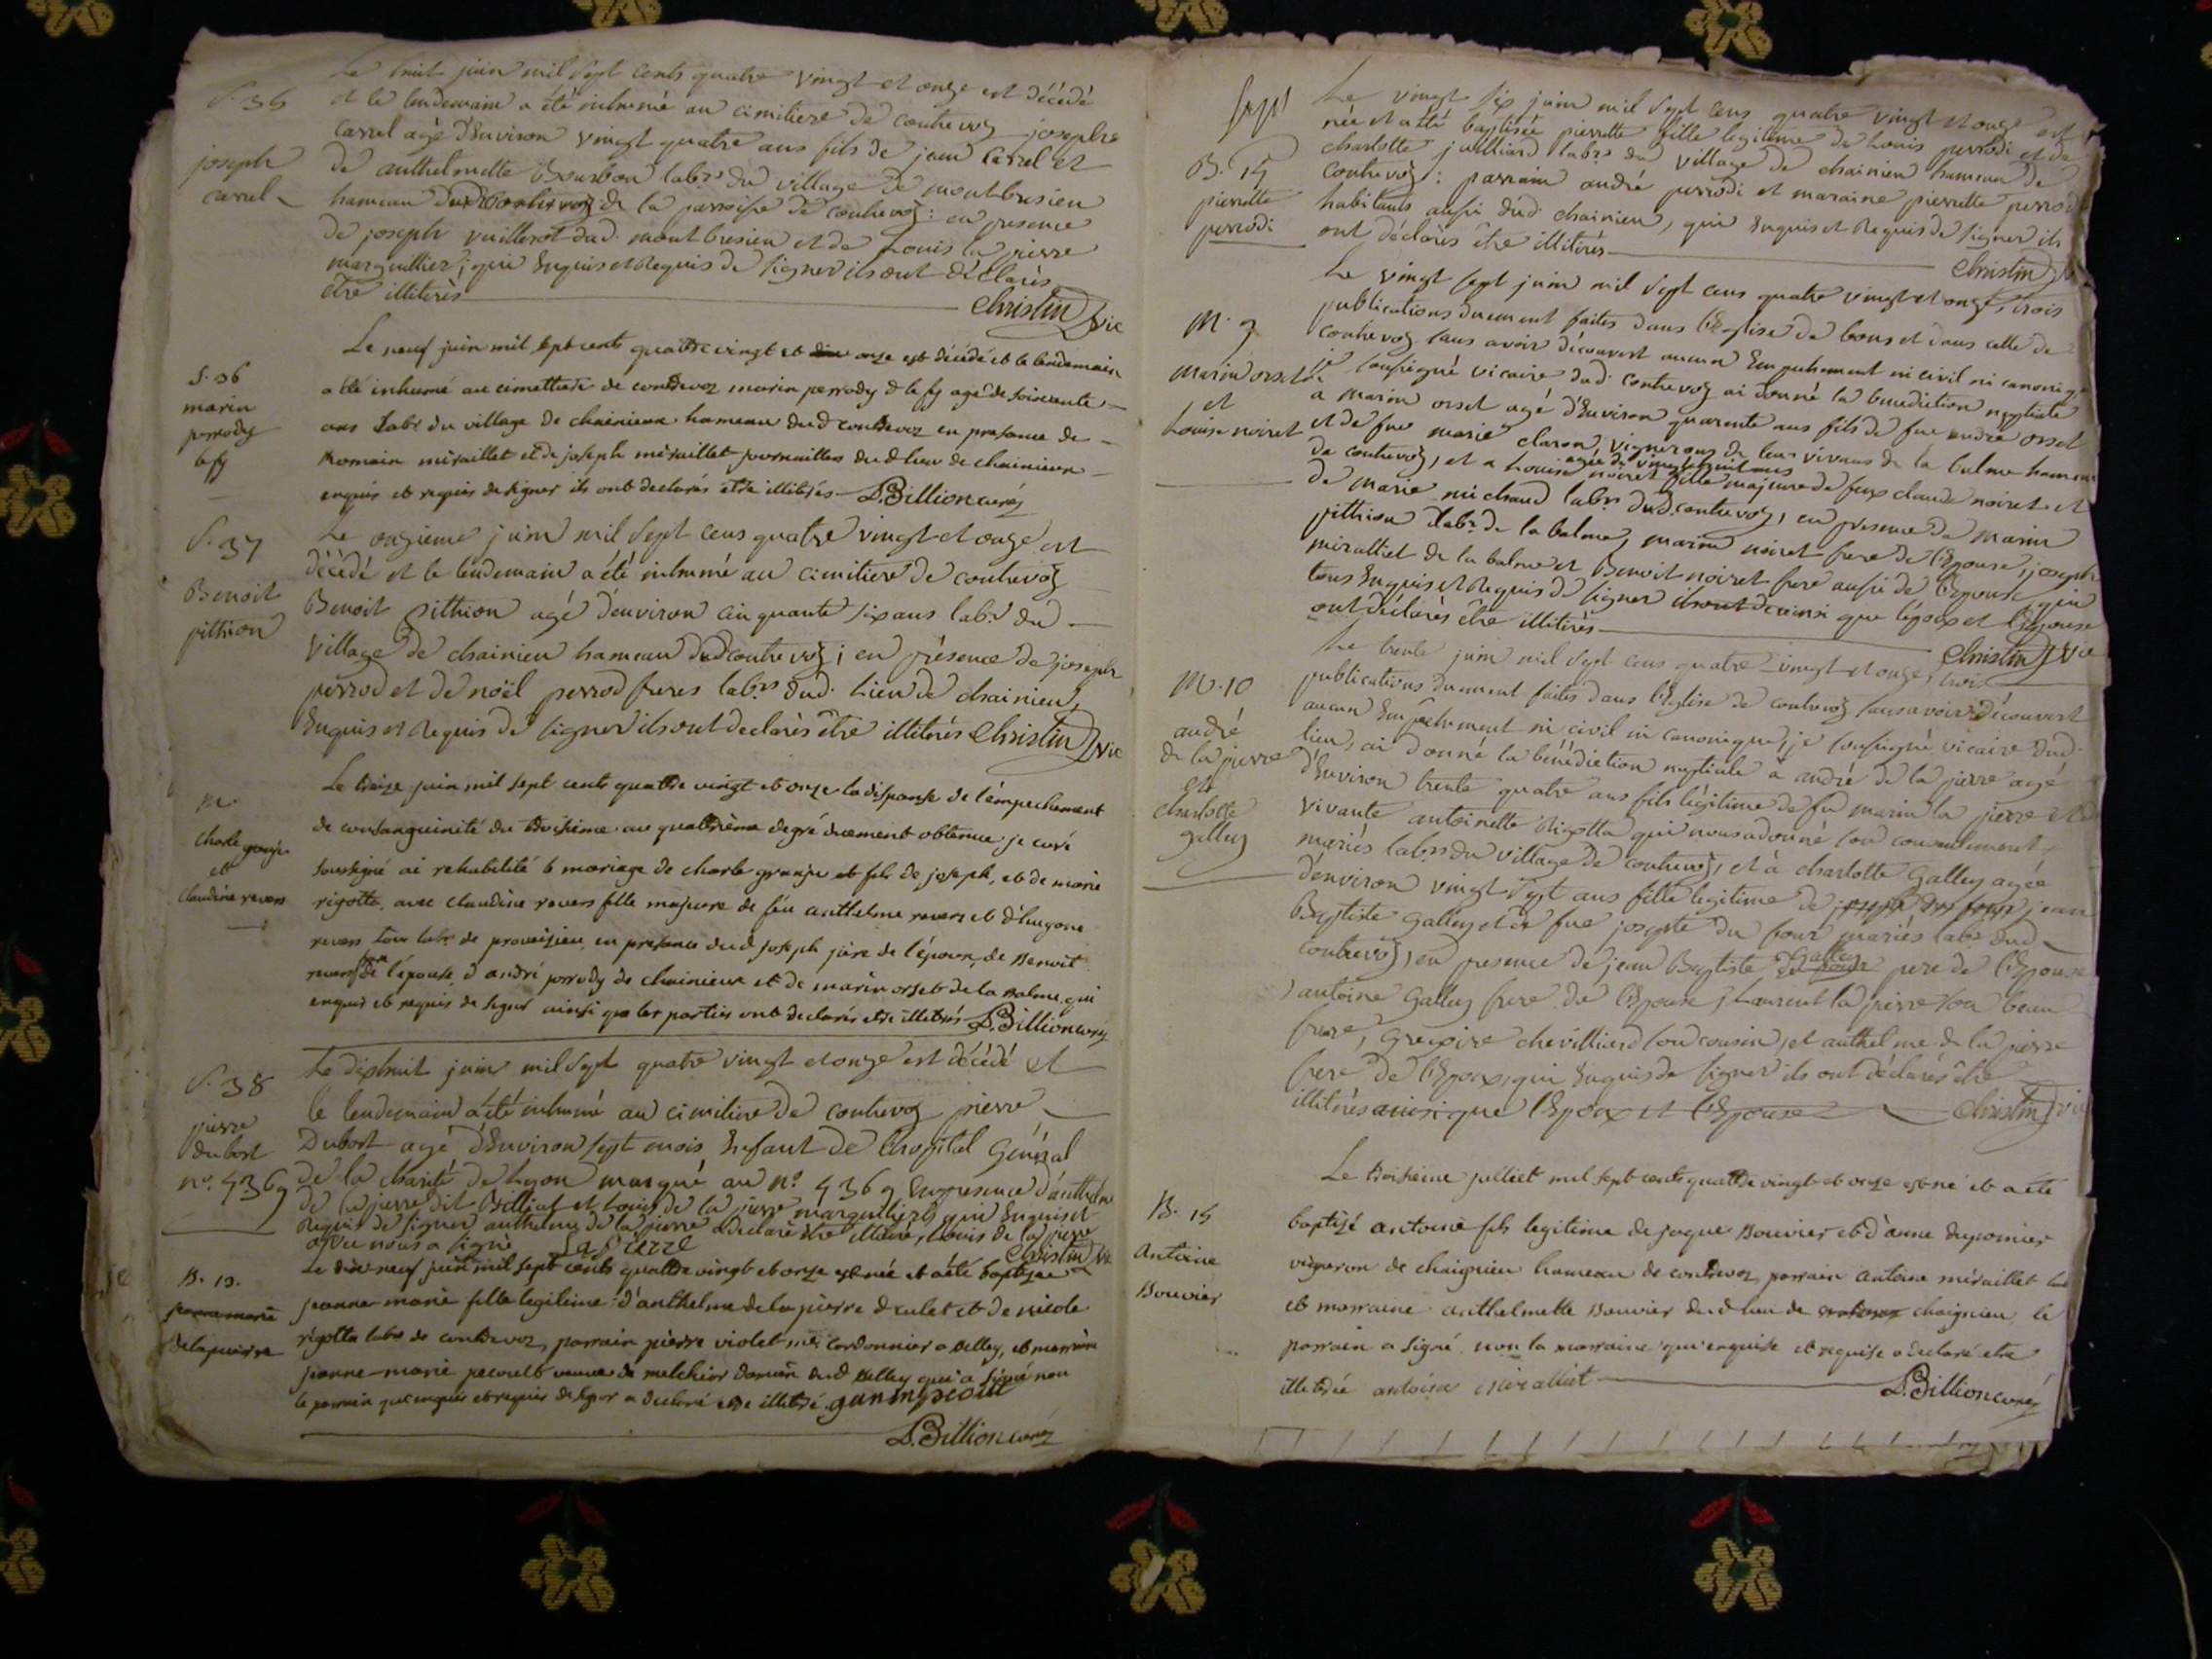 S. 35
joseph
carrel
Le huit juin mil sept cents quatre vingt et onze est décédé
et le lendemain a été inhumé au cimitiere de contrevoz joseph
carrel agé d'Environ vingt quatre ans fils de jean carrel et
de anthelmette Bourbon lab.rs du village de montbresieu
hameau dud contrevoz de la parroisse de contrevoz: en presence
de joseph vuillerot dud. montbresieu et de Louis la pierre
marguillier; qui Enquis et Requis de signer ils ont déclarés
être illiterés
Christin Vic
S. 36
marin
perrody
le fy
Le neuf juin mil sept cents quattre vingt et dix onze est décédé et le lendemain
a été inhumé au cimettiere de contrevoz marin perrody d le fy agé de soixante
ans Lab.r du village de chainieux hameau dud contrevoz en presance de
Romain miraillet et de joseph miraillet journaillers dud lieu de chainieux
enquis et requis de signer ils ont declarés etre illitrés D. Billion curéz
S. 37
Benoit
pithion
Le onzieme juin mil sept cens quatre vingt et onze est
décédé et le lendemain a été inhumé au cimitiere de contrevoz
Benoit pithion agé d'environ cinquante six ans lab.r du
village de chainieu hameau dud contrevoz; en présence de joseph
perrod et de noël perrod freres lab.rs dud. Lieu de chainieu,
Enquis et Requis de signer ils ont declarés être illiterés Christin Vic
M.
Charle granju
et
Claudine revers
Le treize juin mil sept cents quattre vingt et onze la dispanse de l'empechement
de consanguinité du troisieme au quattrieme degré duement obtenue je curé
soussigné ai rehabilité le mariage de charle granju et fils de joseph, et de marie
rigotta avec claudine revers fille majeure de féu anthelme revers et d'hugone
revers tous labr. de proveisieu, en presance dud joseph père de l'époux, de Benoit
revers frere de l'épouse, d'andré perrody de chainieux et de marin orset de la Balme, qui
enquis et requis de signer ainsi que les parties ont declarés etre illitrés D. Billion curéz
S. 38
pierre
dubost
n.° 4369
Le dixhuit juin mil sept quatre vingt et onze est décédé et
le lendemain a été inhumé au cimitiere de contrevoz pierre
Dubost agé d'Environ sept mois Enfant de l'hopital Général
de la charité de Lyon marqué au n.° 4369 En presence d'anthelme
de la pierre dit Billiat et Louis de la pierre marguilliers qui Enquis et
Requis de signer anthelme de la pierre a declaré être illitéré, Louis de la pierre
avec nous a signé La Pierre Christin Vic
B. 13.
jeanne marie
delapierre
Le dix neuf juin mil sept cents quattre vingt et onze est née et a été baptisée
jeanne-marie fille legitime d'anthelme de la pierre d culet et de nicole
rigotta labr de contrevoz, parrain pierre violet me. cordonnier a Belley, et marraine
jeanne-marie pecoult veuve de melchior dud Belley qui a signé non
le parrain qui enquis et requis de signer a declaré etre illitré.
D. Billion curéz
B. 14
pierrette
perrodi
Le vingt six juin mil sept cens quatre vingt et onze est
née et a été baptisée pierrette fille legitime de Louis perrodi et de
charlotte juilliard lab.rs du village de chainieu hameau de
contrevoz: parrain andré perrodi et maraine pierrette perrodi
habitants aussi dud. chainieu, qui Enquis et Requis de signer ils
ont déclarés être illitérés
Christin Vic
M. 9
Marin orset
et
Louise noiret
Le vingt sept juin mil sept cens quatre vingt et onze, trois
publications duement faites dans l'Eglise de bons et dans celle de
contrevoz sans avoir découvert aucun Empechement ni civil ni canonique
je soussigné vicaire dud. contrevoz ai donné la benediction nuptiale
a marin orset agé d'Environ quarante ans fils de feu andré orset
et de feue marie claron, vignerons de leur vivans de la balme hameau
de contrevoz, et a Louise noiret agée de vingt huit ans fille majeure de feux claude noiret et
de marie michaud lab.rs dud. contrevoz, en presence de marin
pithion lab.r de la balme, marin noiret frere de l'Epouse, joseph
miralliet de la balme et Benoit noiret frere aussi de l'Epouse, qui
tous Enquis et Requis de signer ainsi que l'époux et l'Epouse
ont déclarés être illitérés
Christin Vic
M. 10
andré
de la pierre
et
charlotte
galley
Le trente juin mil sept cens quatre vingt et onze, trois
publications duement faites dans l'Eglise de contrevoz sans avoir découvert
aucun Empechement ni civil ni canonique; je soussigné vicaire dud.
lieu, ai donné la bénédiction nuptiale à andré de la pierre agé
d'Environ trente quatre ans fils légitime de feu marin la pierre et de
vivante antoinette Rigotta qui nous a donné son consentement
mariés lab.rs du village de contrevoz, et à charlotte Galley agée
d'environ vingt sept ans fille legitime de jean
Baptiste Galley et de feue josepte du four mariés lab.rs dud
contrevoz, en presence de jean Baptiste Galley pere de l'Epouse
antoine Galley frere de l'Epouse, Laurent la pierre son beau
frere, Gregoire chevilliard son cousin, et anthelme de la pierre
frere de l'Epoux, qui Enquis de signer ils ont déclarés être
illitérés ainsi que l'Epoux et l'Epouse Christin Vic
B. 15
Antoine
Bouvier
Le troisieme julliet mil sept cents quattre vingt et onze est né et a été
baptisé antoine fils legitime de jaque Bouvier et d'anne dupomier
vigneron de chaignieu hameau de contrevoz, parrain antoine miraillet
et marraine anthelmette Bouvier dud lieu de contrevoz chaignieu, le
parrain a signé non la marraine qui enquise et requise a declaré etre
illitrée antoine miralliet D. Billion curéz